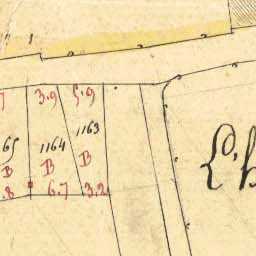 3.9 5.9
1163
65 1164
B B B
.8 6.7 3.2
L'h